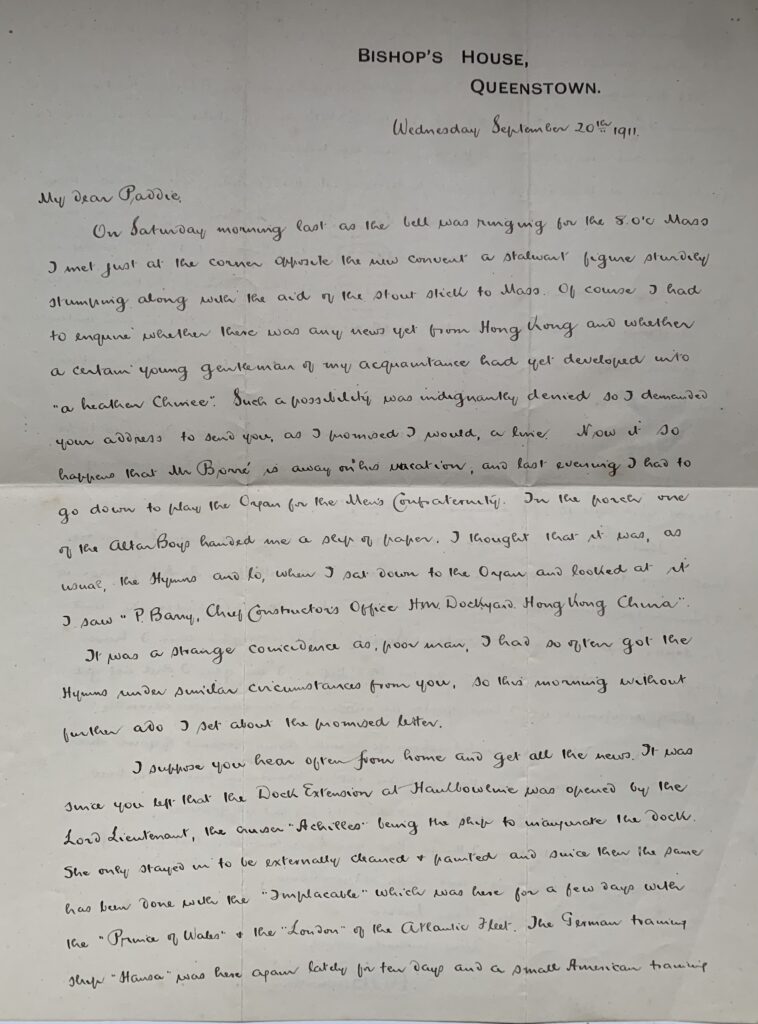 BISHOP'S HOUSE,
QUEENSTOWN.
Wednesday September 20th 1911.
My dear Paddie,
On Saturday morning last as the bell was ringing for the 8.0'c Mass
I met just at the corner opposite the new convent a stalwart figure sturdily
stumping along with the aid of the stout stick to Mass. Of course I had
to enquire whether there was any news yet from Hong Kong and whether
a certain young gentleman of my acquaintance had yet developed into
"a heathen Chinee". Such a possibility was indignantly denied so I demanded
your address to send you, as I promised I would, a line. Now it so
happens that Mr is away on his vacation, and last evening I had to
go down to play the Organ for the Men's Confraternity. In the porch one
of the Altar Boys handed me a slip of paper. I thought that it was, as
usual, the Hymns and lo, when I sat down to the Organ and looked at it
I saw "P. Barry, Chief Constructor's Office HM. Dockyard. Hong Kong China".
It was a strange coincidence as, poor man, I had so often got the
Hymns under similar circumstances from you, so this morning without
further ado I set about the promised letter.
I suppose you hear often from home and get all the news. It was
since you left that the Dock Extension at Haulbowline was opened by the
Lord Lieutenant, the cruiser "Achilles" being the ship to inaugurate the dock.
She only stayed in to be externally cleaned & painted and since then the same
has been done with the "Implacable" which was here for a few days with
the "Prince of Wales" & the "London" of the Atlantic Fleet. The German training
ship "Hansa" was here again lately for ten days and a small American training